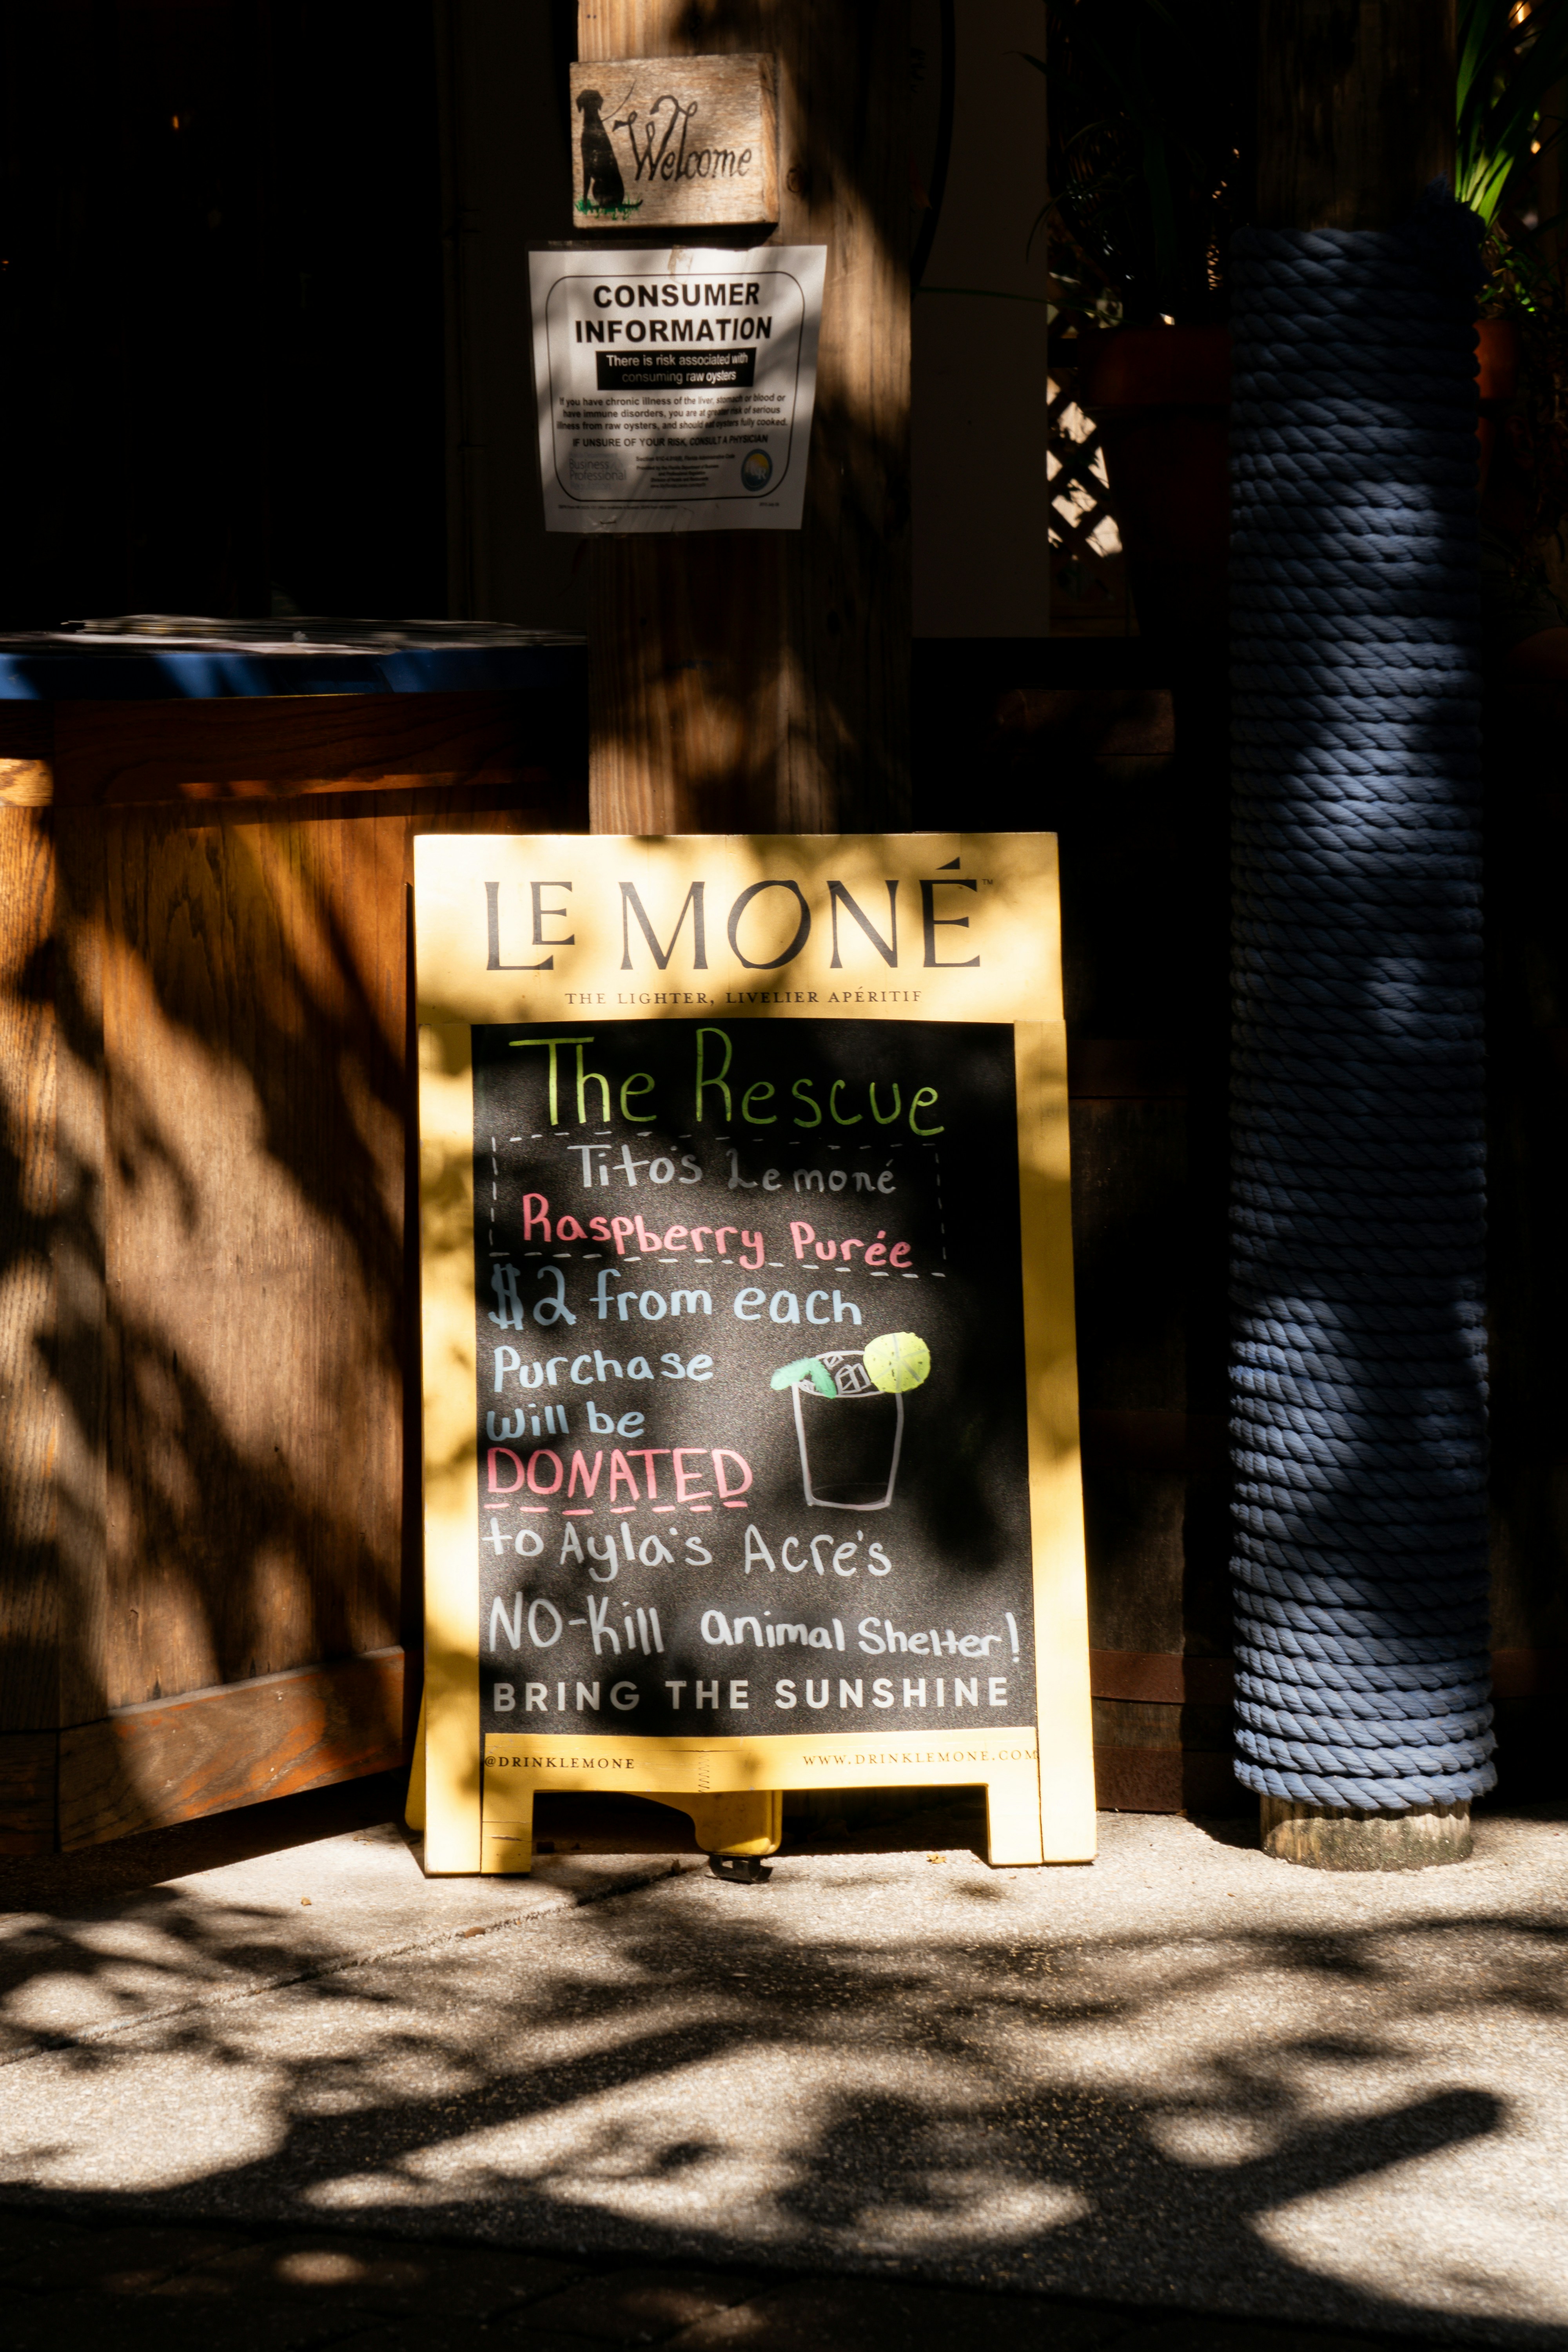 Welcome
CONSUMER
INFORMATION
There is risk associated with
consuming raw oysters
If you have chronic illness of the liver, stomach or blood or
have immune disorders, you are at greater risk of serious
illness from raw oysters, and should eat oysters fully cooked.
IF UNSURE OF YOUR RISK, CONSULT A PHYSICIAN
Business
Professional
LE MONÉ™
THE LIGHTER, LIVELIER APÉRITIF
The Rescue
Tito's Lemoné
Raspberry Purée
$2 from each
Purchase
will be
DONATED
to Ayla's Acre's
NO-Kill animal Shelter!
BRING THE SUNSHINE
@DRINKLEMONE
WWW.DRINKLEMONE.COM